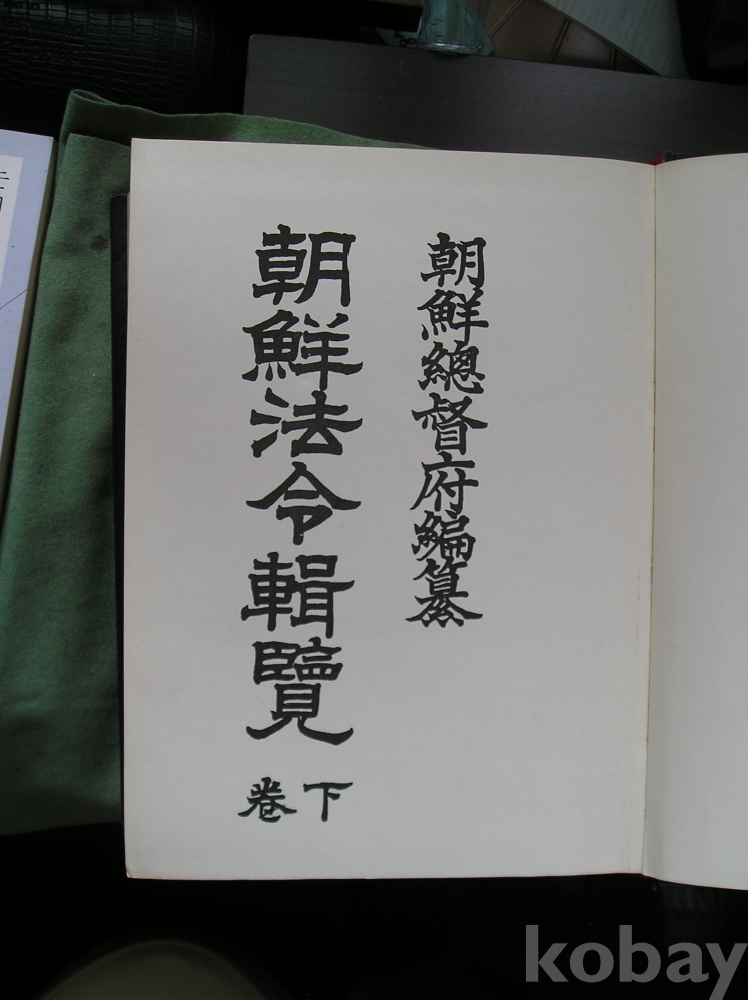 朝鮮總督府編纂
朝鮮法令輯覽
下卷
kobay